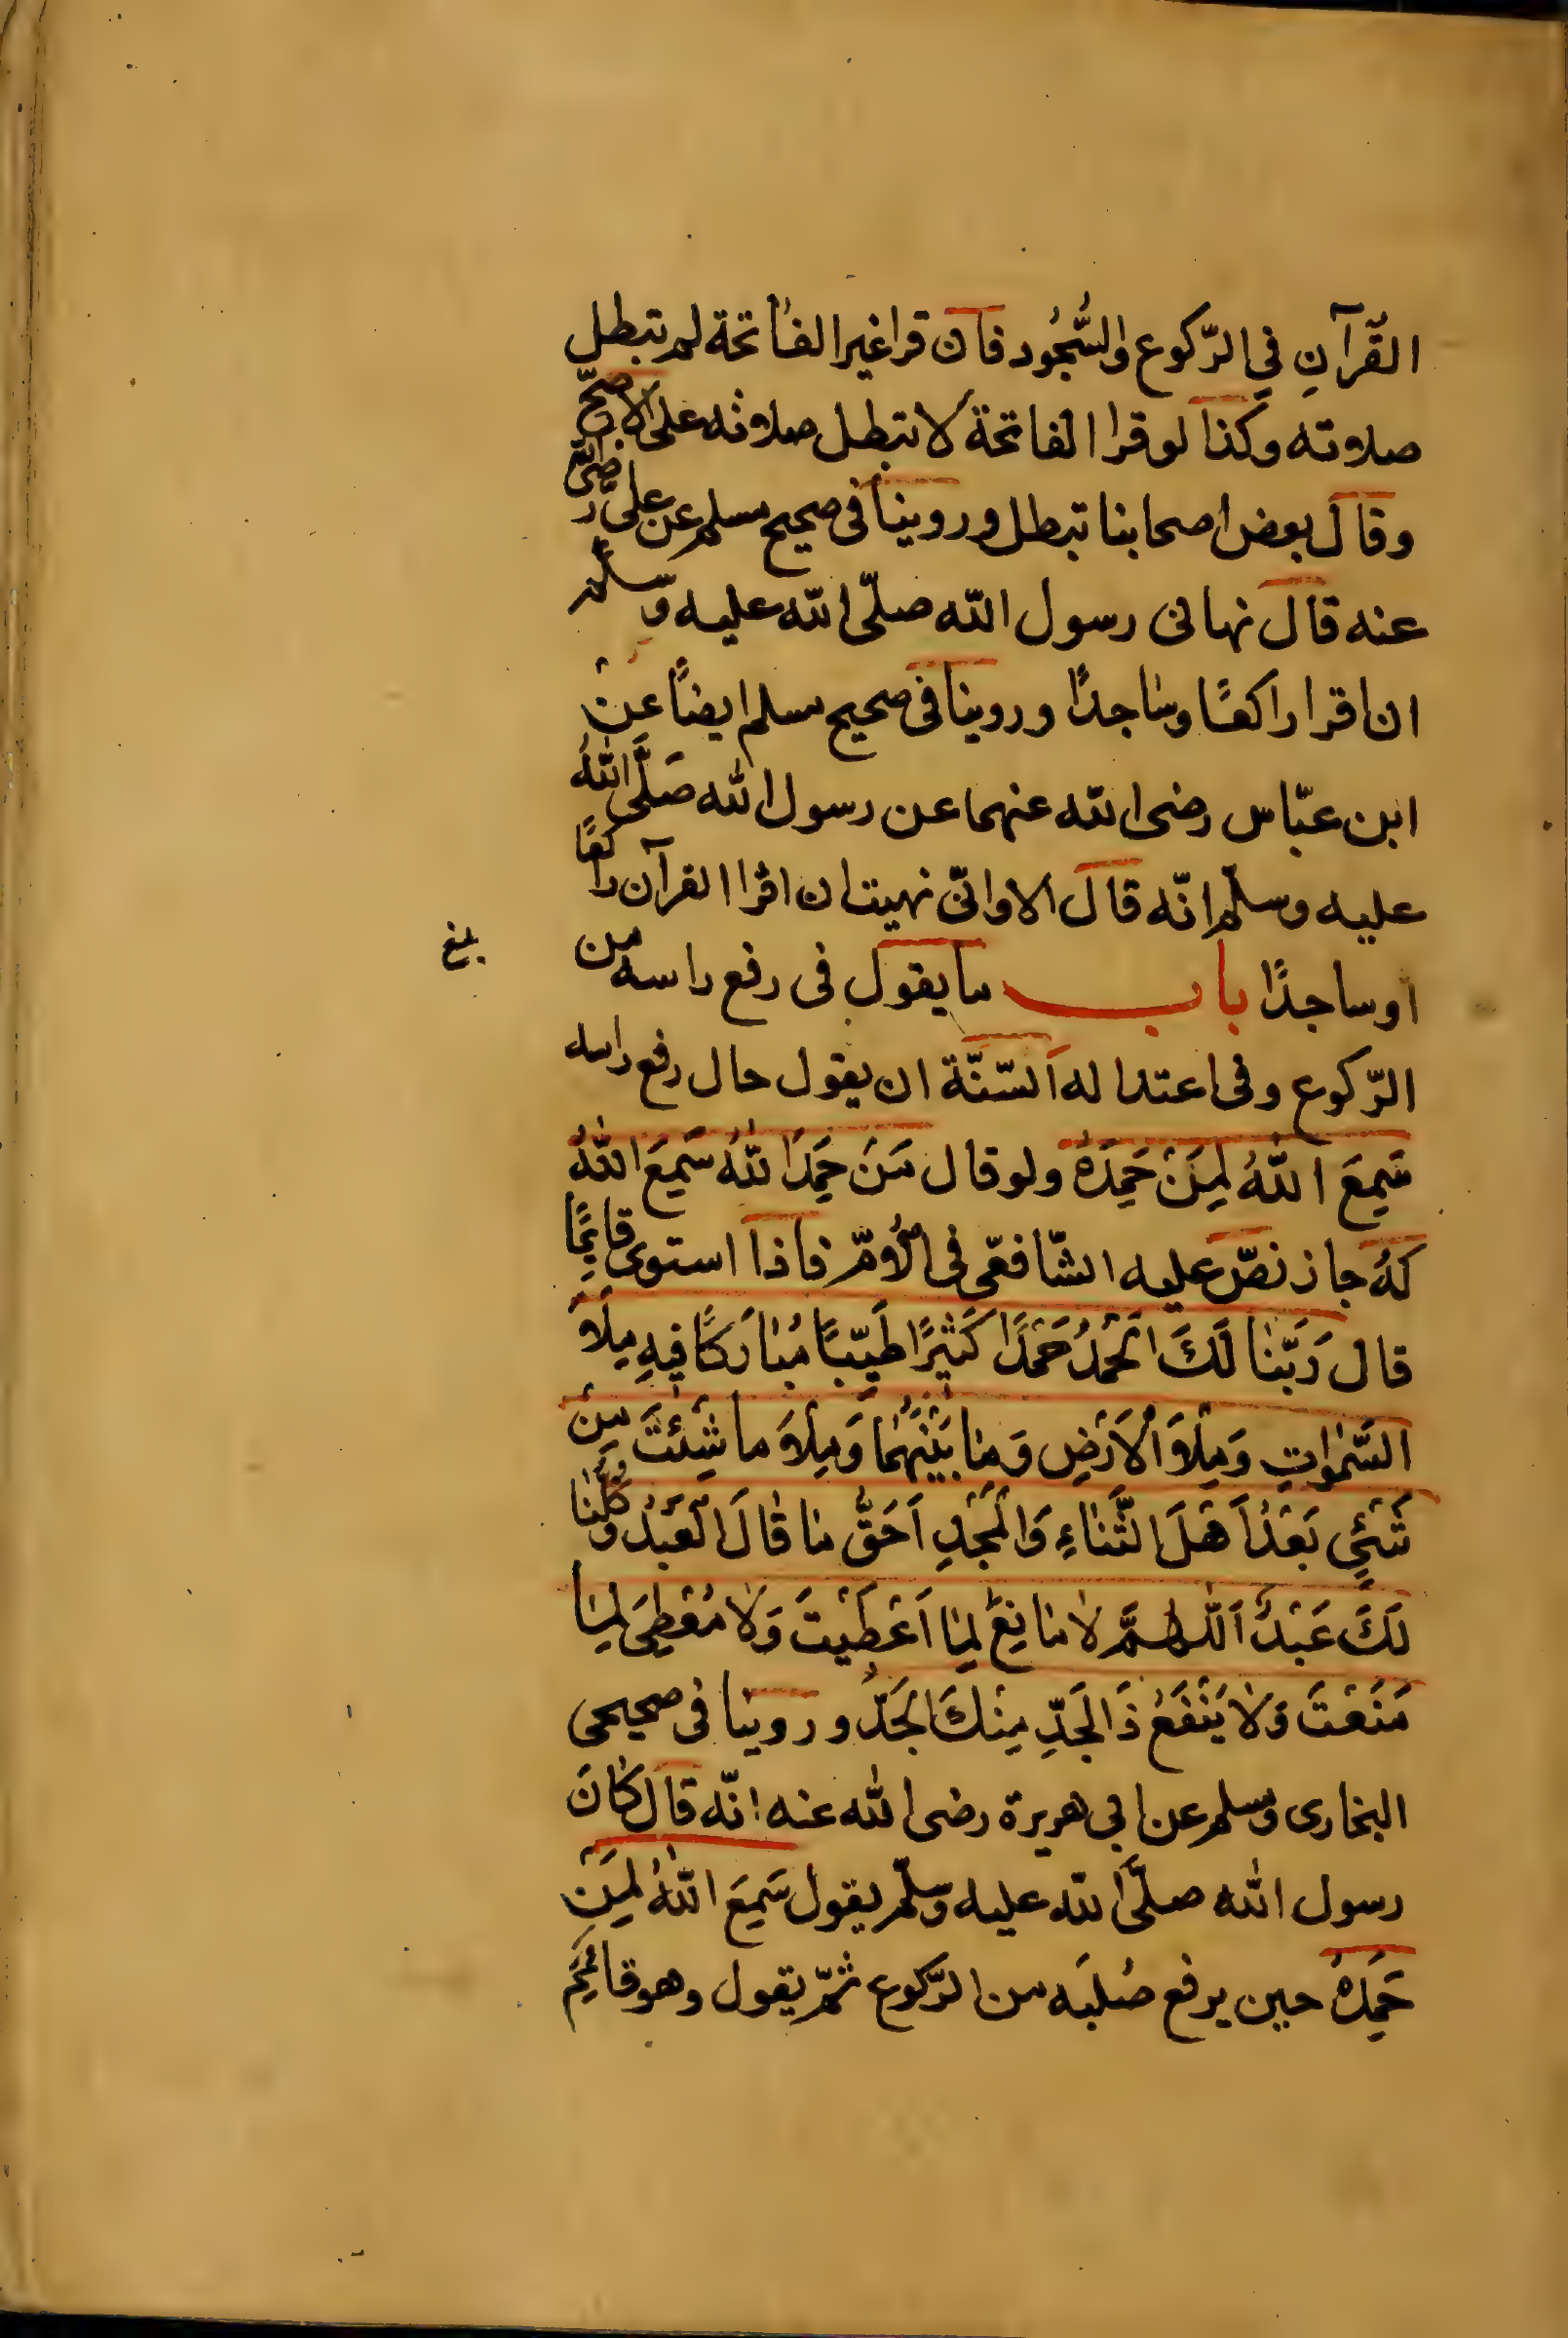 القُرآنِ فِي الرّكوع والسُّجُود فان قرا غير الفاتحة لم تبطل
صلاوته وكذا لو قرا الفاتحة لا تبطل صلاوته على الاصحّ
وقال بعض اصحابنا تبطل وروينا فى صحيح مسلم عن على رضى اللّه
عنه قال نهانى رسول اللّه صلّى اللّه عليه وسلم
ان اقرا راكعًا وساجدًا وروينا فى صحيح مسلم ايضًا عن
ابن عبّاس رضى اللّه عنهما عن رسول اللّه صَلَّى اللّهُ
عليه وسلّم انّه قال الا وانّى نهيت ان اقرا القرآن راكعًا
او ساجدًا باب ما يقول فى رفع راسه من
الرّكوع وفى اعتداله اَلسّنّة ان يقول حال رفع راسه
سَمِعَ اللّهُ لِمَنْ حَمِدَهُ ولو قال مَنْ حَمِدَ اللّهُ سَمِعَ اللّهُ
لَهُ جاز نصّ عليه الشّافعّى فى الأُمّ فاذا استوى قايمًا
قال رَبَّنا لَكَ الحَمْدُ حَمْدًا كَثيرًا طَيّبًا مُبارَكًا فيهِ مِلَاَ
السَّمٰواتِ وَمِلَاَ الْاَرَضِ وَما بَيْنَهُما وَمِلَاَ ما شِئتَ مِنْ
شَئيٍ بَعْدُ اَهْلَ الثَّناءِ وَالْمَجْدِ اَحَقُّ ما قالَ الْعَبْدُ وَكُلُّنا
لَكَ عَبْدٌ اَللّهُمَّ لا مانِعَ لِما اَعْطَيْتَ وَلا مُعْطِىَ لِما
مَنَعْتَ وَلا يَنْفَعُ ذَا الجَدِّ مِنْكَ الجَدُّ وروينا فى صحيحى
البخارى ومسلم عن ابى هريرة رضى اللّه عنه انّه قال كان
رسول اللّه صلَّى اللّه عليه وسلّم يقول سَمِعَ اللّهُ لِمَنْ
حَمِدَهُ حين يرفع صُلبَه من الرّكوع ثمّ يقول وهو قائم
بلغ